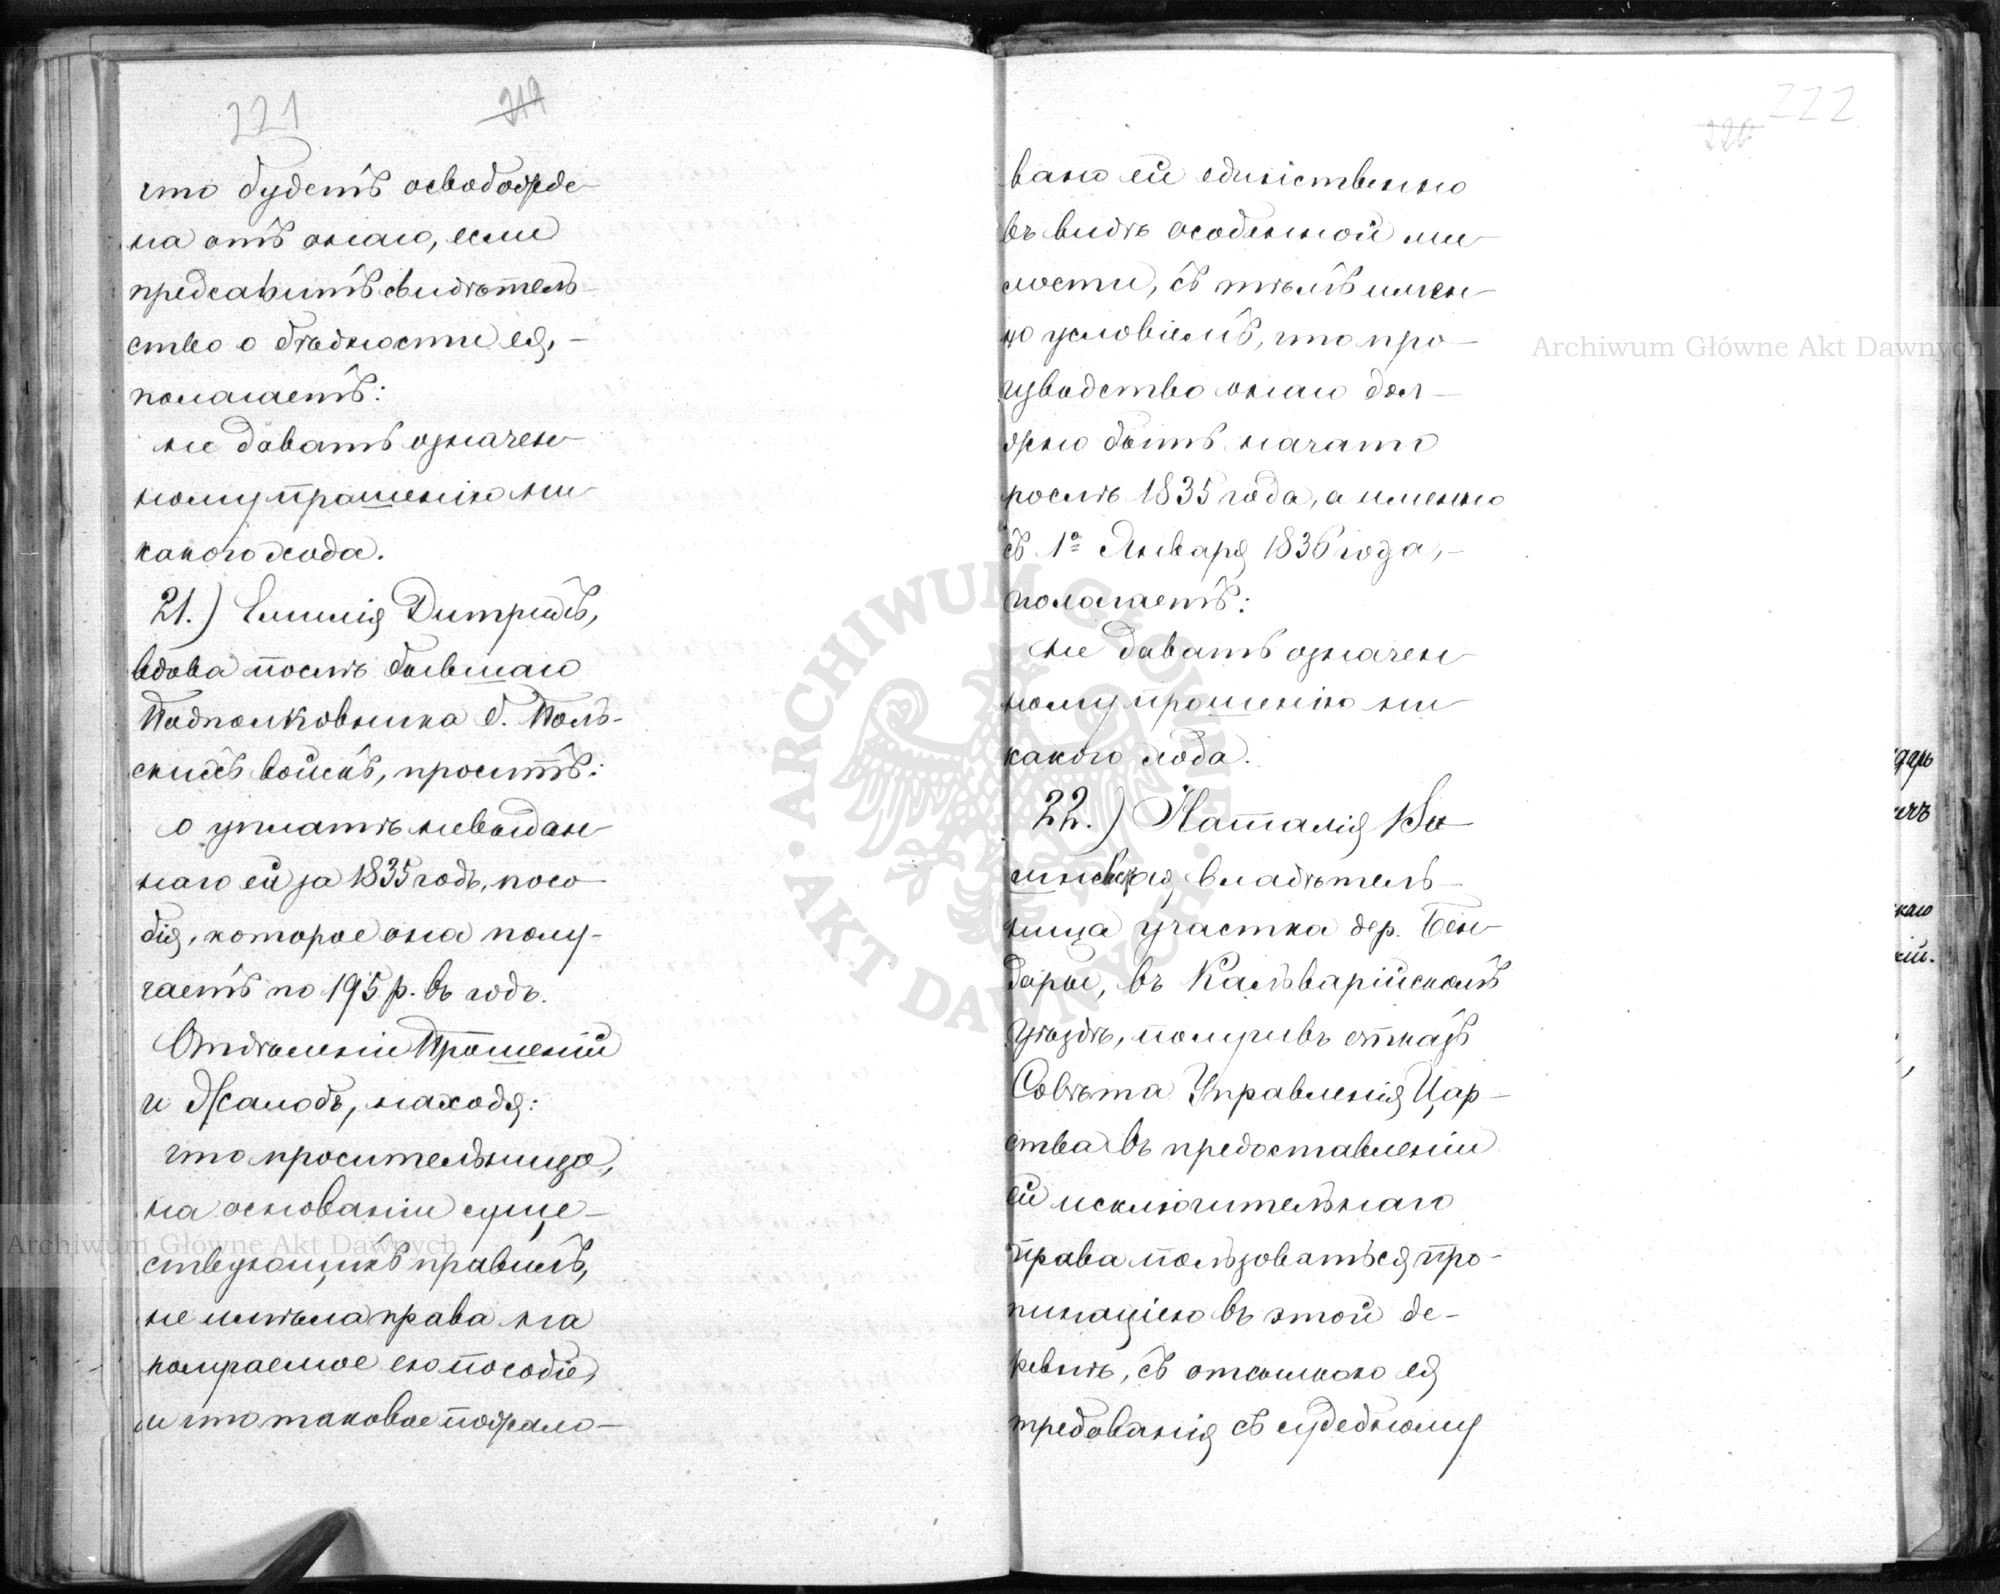 221 219
что будетъ освобожде-
на отъ онаго, если
предсавитъ свидѣтель-
ство о бѣдности ея, -
полагаетъ:
не давать означен-
ному прошенію ни-
какого хода.
21.) Емилія Дитрихъ,
вдова послѣ бывшаго
Подполковника б. Поль-
скихъ войскъ, проситъ:
о уплатѣ невыдан-
наго ей за 1835 годъ, посо-
бія, которое она полу-
чаетъ по 195 р. въ годъ.
Отдѣленіи Прошеній
и Жалобъ, находя:
что просительница,
на основаніи суще-
ствующихъ правилъ,
не имѣла права на
получаемое ею пособіе,
и что таковое пожало-
222
220
вано ей единственно
въ видѣ особенной ми-
лости, съ тѣмъ имен-
но условіемъ, что про-
изводство онаго дол-
жно быть начато
послѣ 1835 года, а именно
съ 1º Января 1836 года, -
полагаетъ:
не давать означен-
ному прошенію ни-
какого хода.
22.) Наталія
владѣтель-
ница участка дер. Бен-
дары, въ Кальварійскомъ
Уѣздѣ, получивъ отказъ
Совѣта Управленія Цар-
ства въ предоставленіи
ей исключительнаго
права пользоваться про-
пинаціею въ этой де-
ревнѣ, съ отсылкою ея
требованія къ судебному
Archiwum Główne Akt Dawnych
Archiwum Główne Akt Dawnych
ARCHIWUM GŁÓWNE · AKT DAWNYCH ·